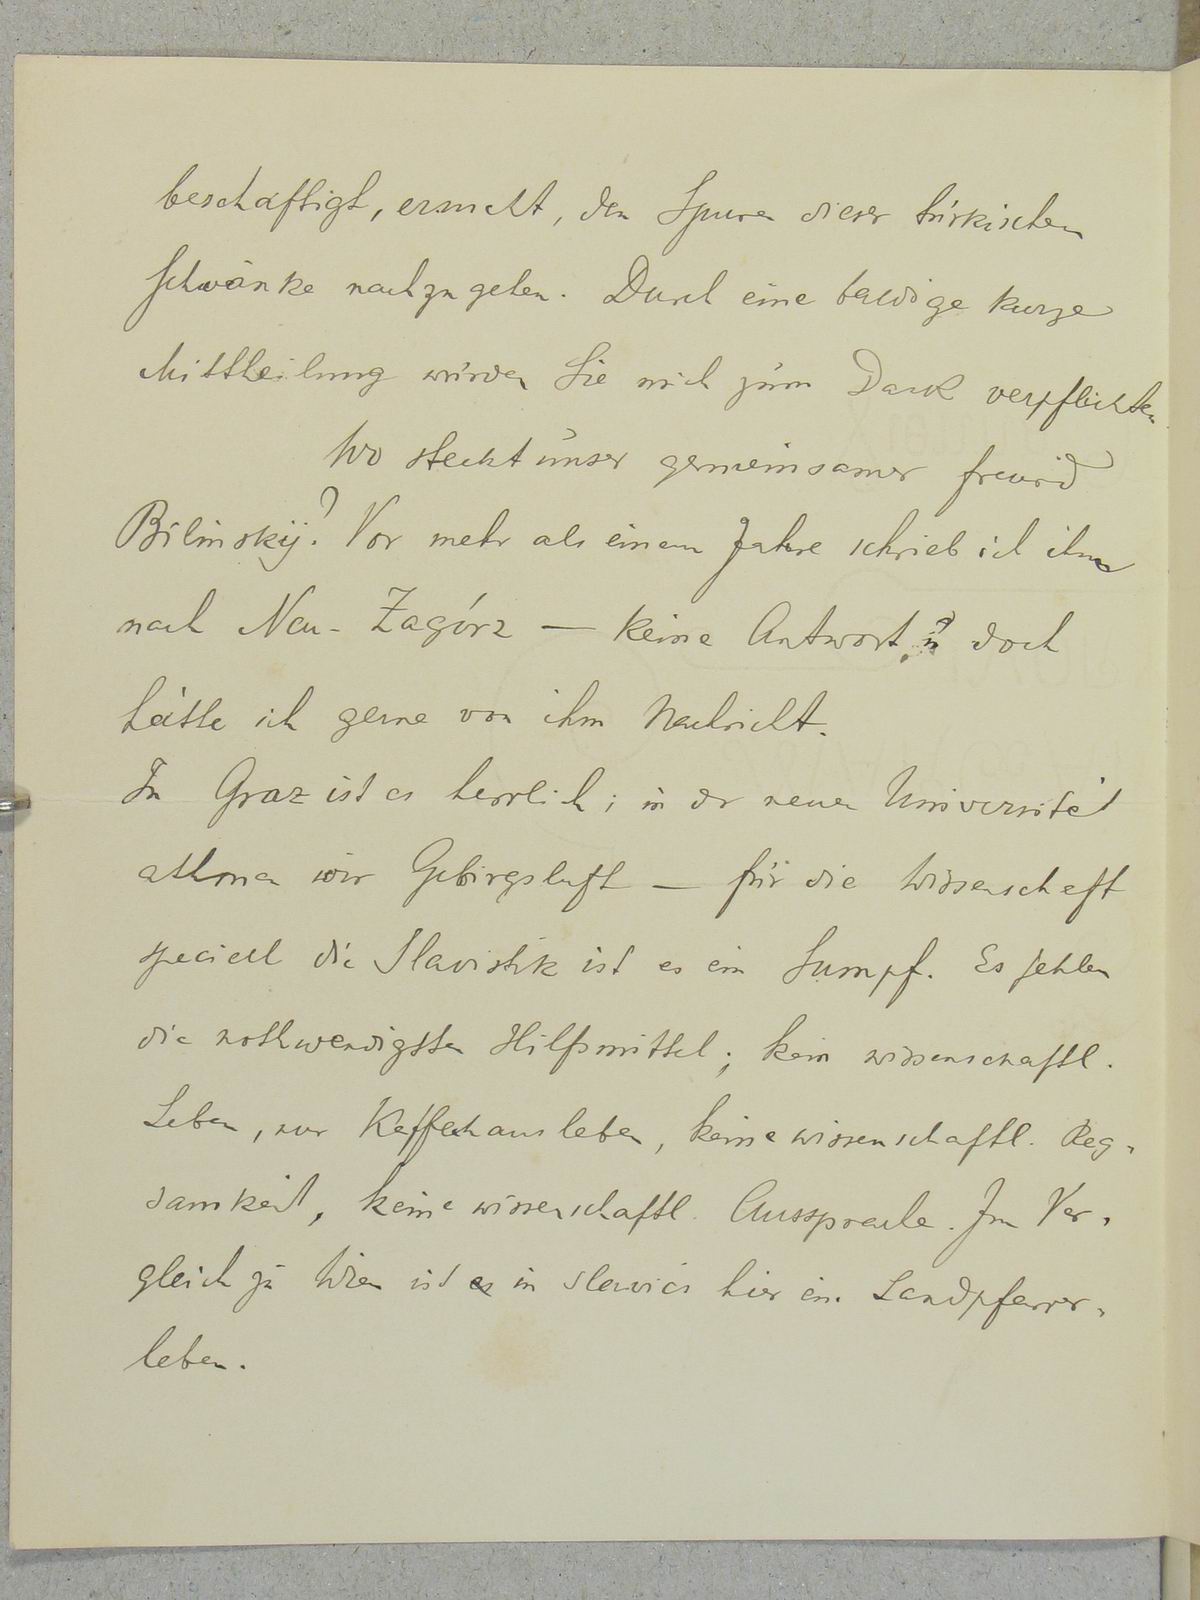 beschäftigt, ersucht, den Spuren dieser türkischen
Schwänke nachzugehen. Durch eine baldige kurze
Mittheilung würden Sie mich zum Dank verpflichten.
Wo steckt unser gemeinsamer Freund
Bilinskij? Vor mehr als einem Jahre schrieb ich ihm
nach Neu-Zagórz — keine Antwort, u doch
hätte ich gerne von ihm Nachricht.
In Graz ist es herrlich; in der neuen Universität
athmen wir Gebirgsluft — für die Wissenschaft
speciell die Slavistik ist es ein Sumpf. Es fehlen
die nothwendigsten Hilfsmittel; kein wissenschaftl.
Leben, nur Kaffeehausleben, keine wissenschaftl. Reg-
samkeit, keine wissenschaftl. Aussprache. Im Ver-
gleich zu Wien ist es in slavicis hier ein Landpfarrer-
leben.